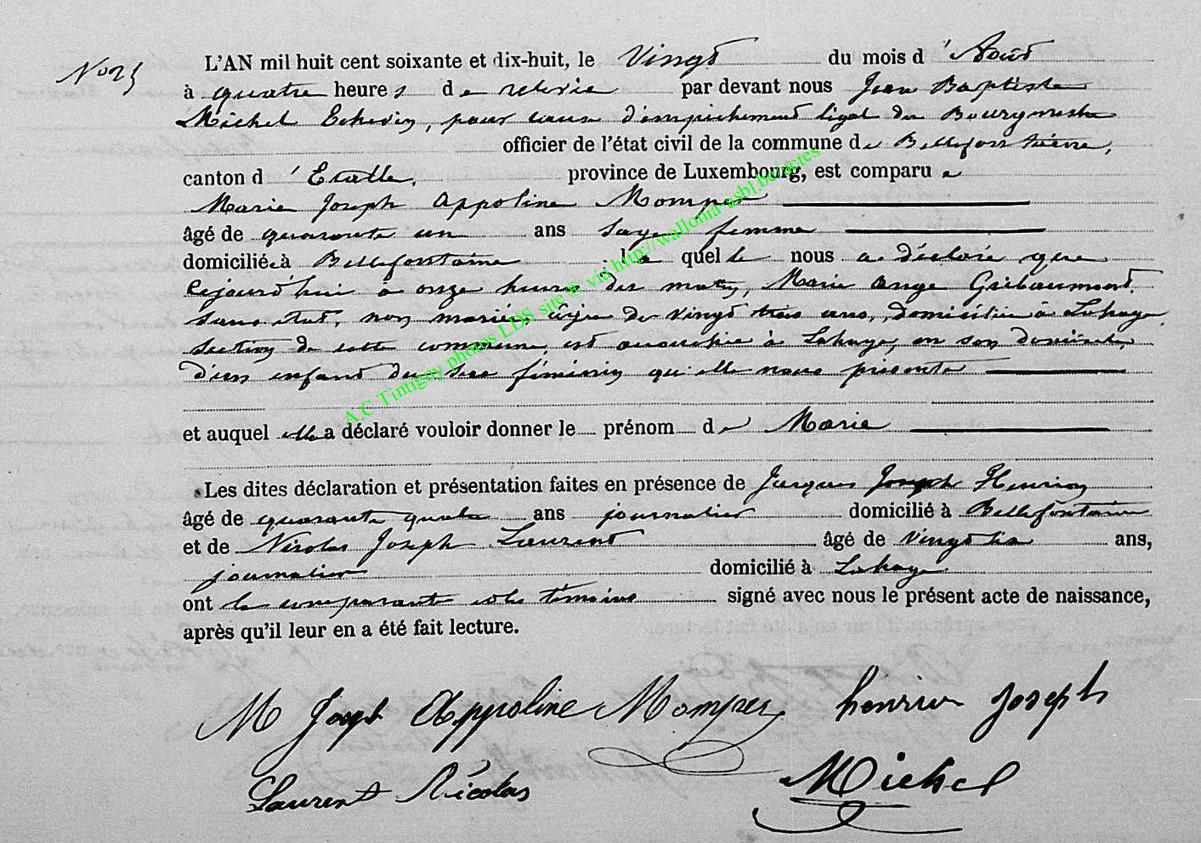 N° 25
L'AN mil huit cent soixante et dix-huit, le Vingt du mois d' Août
à quatre heure s de relevée par devant nous Jean Baptiste
Michel Echevin, pour cause d'empêchement légal du Bourgmestre
officier de l'état civil de la commune de Bellefontaine,
canton d 'Etalle, province de Luxembourg, est comparu e
Marie Joseph Appoline Momper
âgé de quarante un ans sage femme
domiciliée à Bellefontaine la quelle nous a déclaré que
cejourd'hui à onze heures du matin, Marie Ange Gribaumont
sans état, non mariée, âgée de vingt trois ans, domiciliée à Lahage
section de cette commune, est accouchée à Lahage, en son domicile,
d'un enfant du sexe féminin qu'elle nous présente
et auquel elle a déclaré vouloir donner le prénom de Marie
Les dites déclaration et présentation faites en présence de Jacques Joseph Henrion
âgé de quarante quatre ans journalier domicilié à Bellefontaine
et de Nicolas Joseph Laurent âgé de vingt six ans,
journalier domicilié à Lahage
ont la comparante et les témoins signé avec nous le présent acte de naissance,
après qu'il leur en a été fait lecture.
M Joseph Appoline Momper henrion joseph
Laurent Nicolas Michel
A.C Tintigny photos LDS site @ via http://wallonia-asbl.be/actes